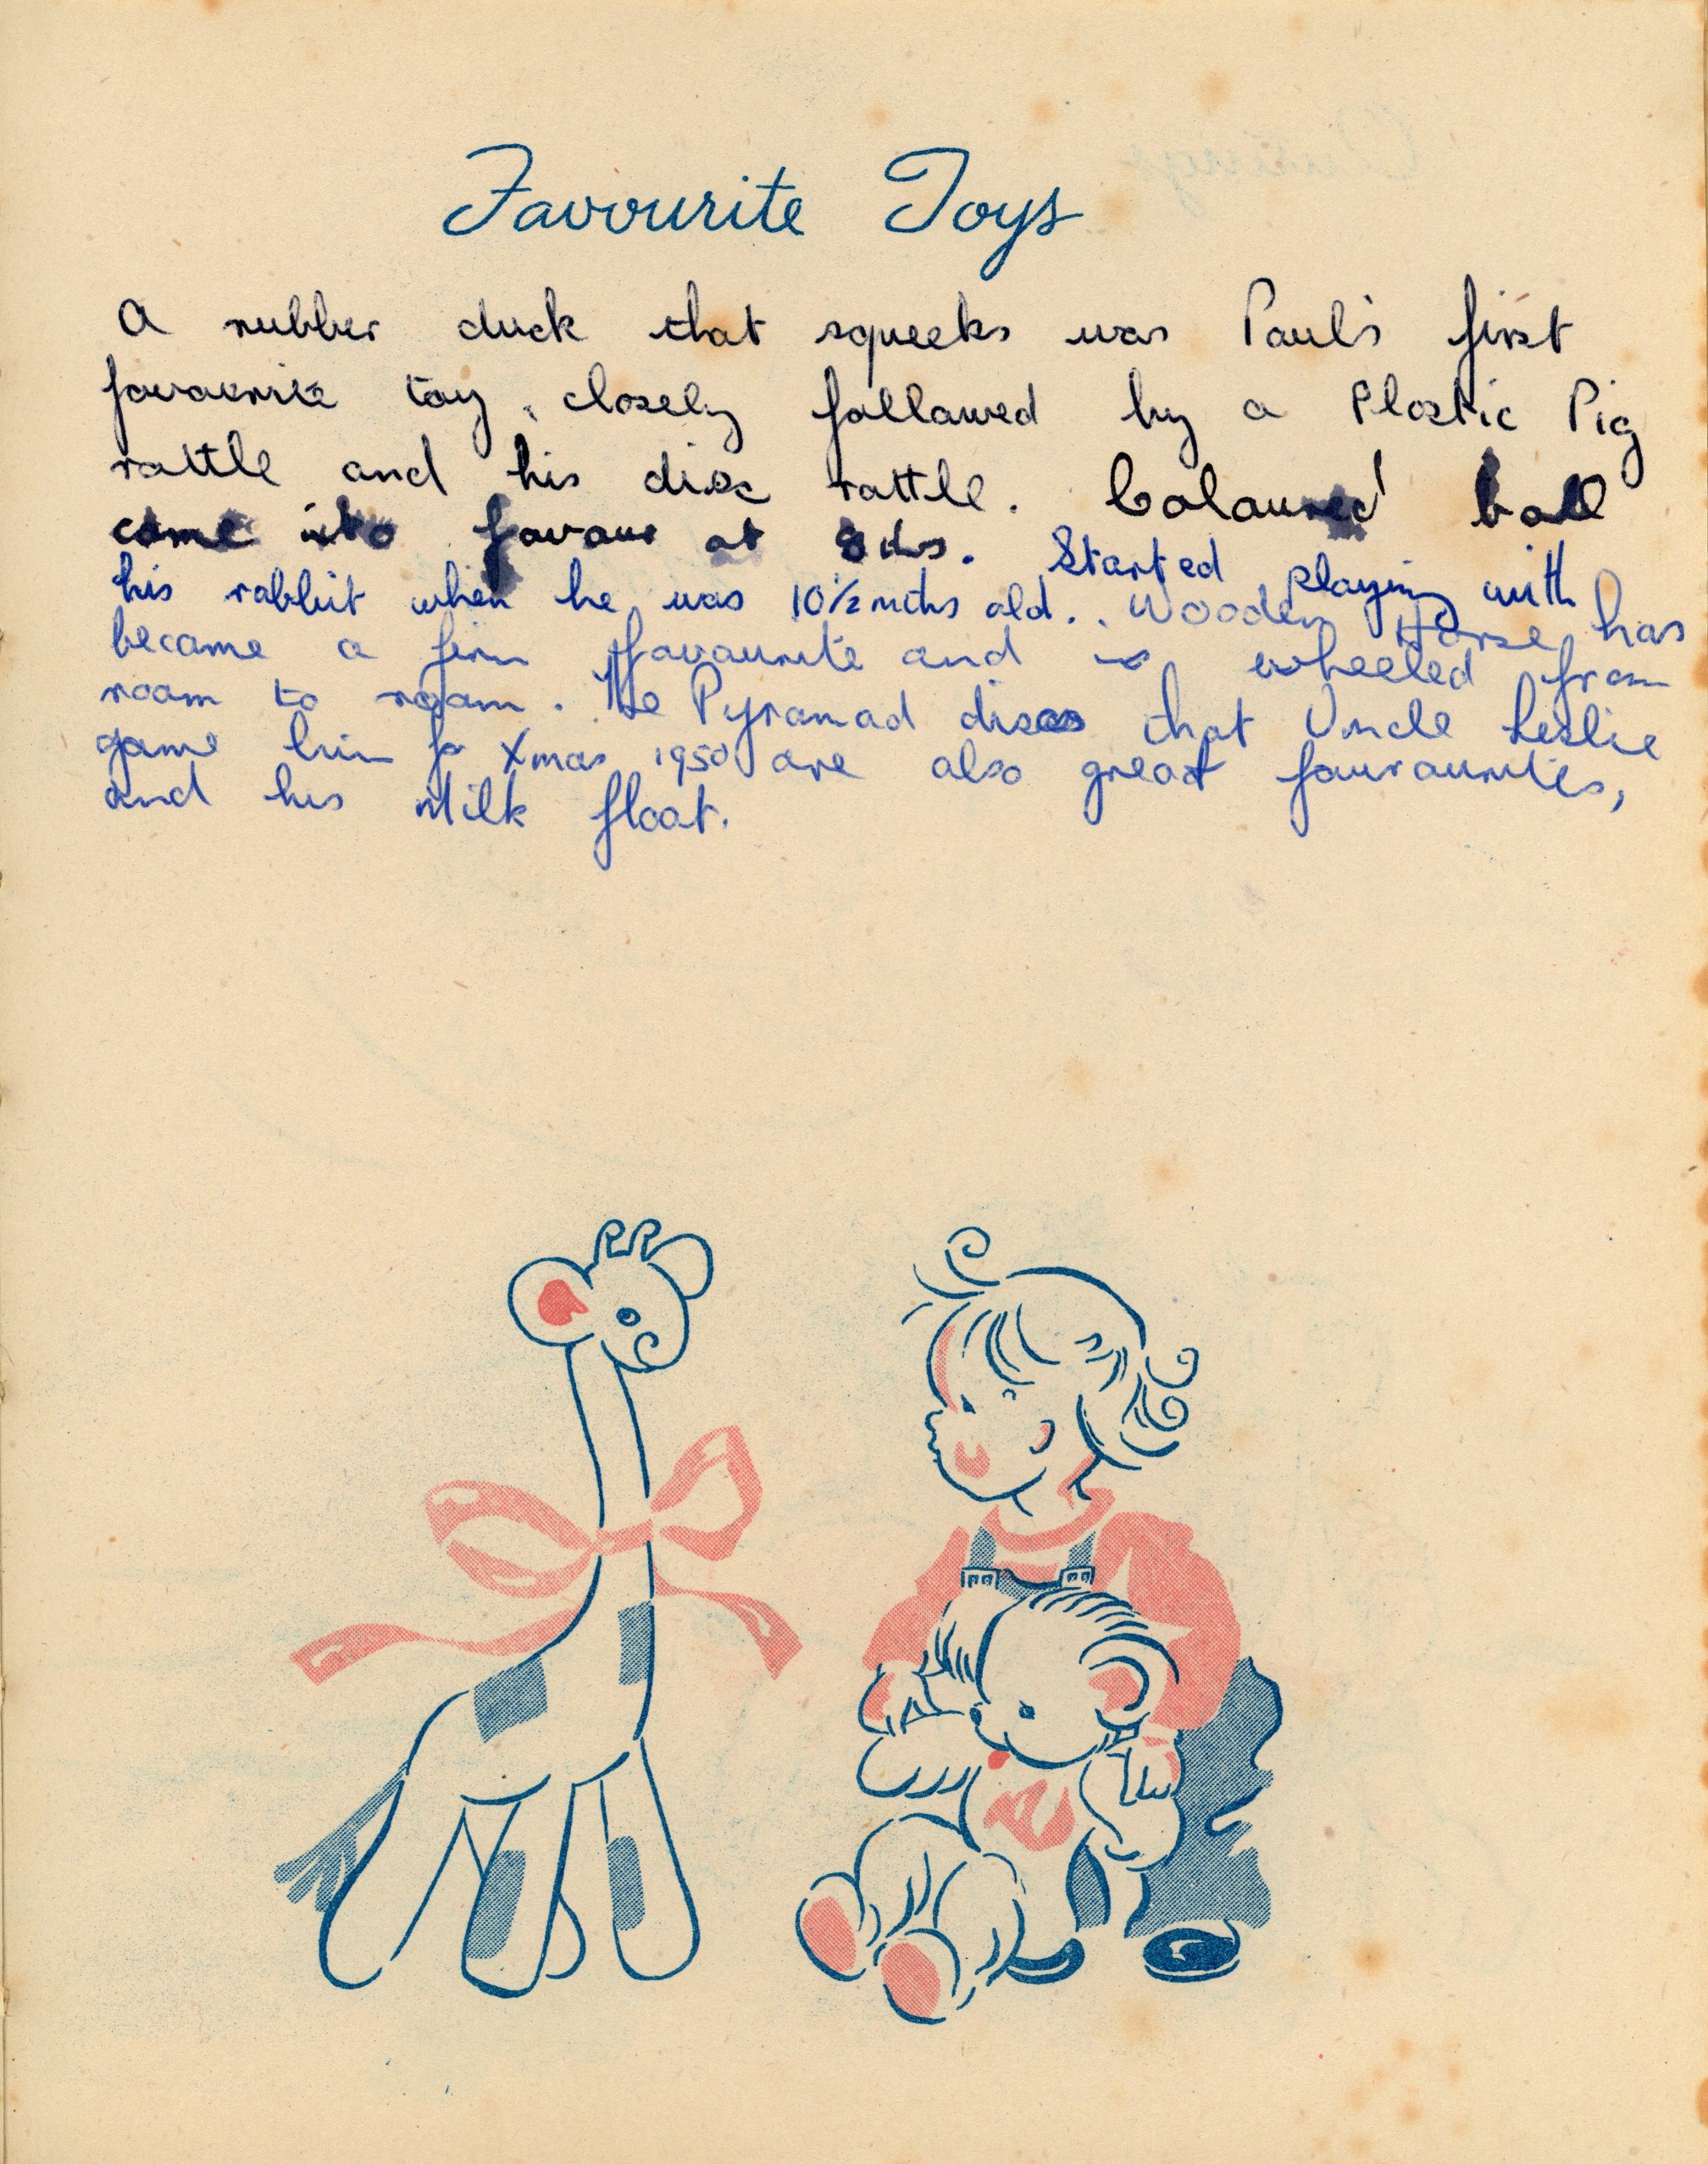 Favourite Toys
A rubber duck that squeeks was Paul's first
favourite toy, closely followed by a Plastic Pig
rattle and his disc rattle. Coloured ball
came into favour at 8 mths. Started playing with
his rabbit when he was 10½ mths old. Wooden Horse has
became a firm favourite and is wheeled from
room to room. The Pyramad discs that Uncle Leslie
game him for Xmas 1950 are also great favourites,
and his Milk float.